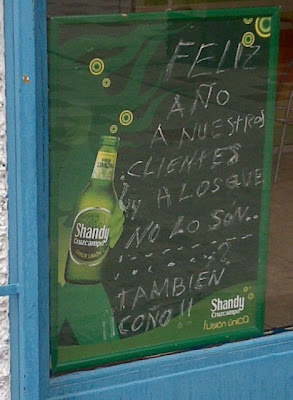 FELIZ
AÑO
A NUESTROS
CLIENTES
Y A LOS QUE
NO LO SON..
TAMBIEN
¡¡COÑO!!
Shandy
Cruzcampo
Shandy
Cruzcampo
fusión única